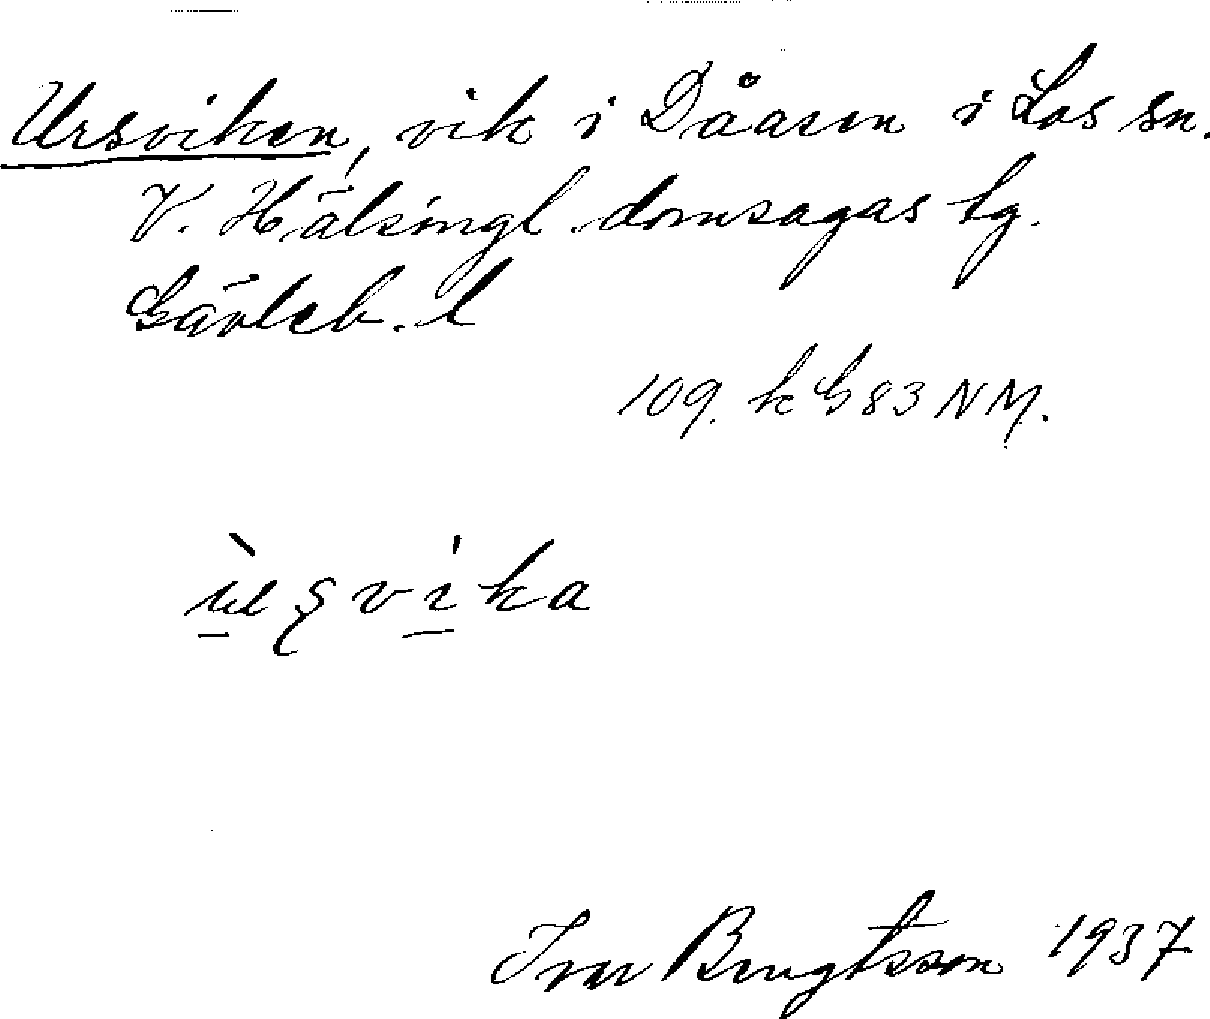 Ursviken, vik i Dåasen i Los sn.
V. Hälsingl. domsagas tg.
Gävleb. l
109. k G 83 NM.
Ivar Bengtsson 1937